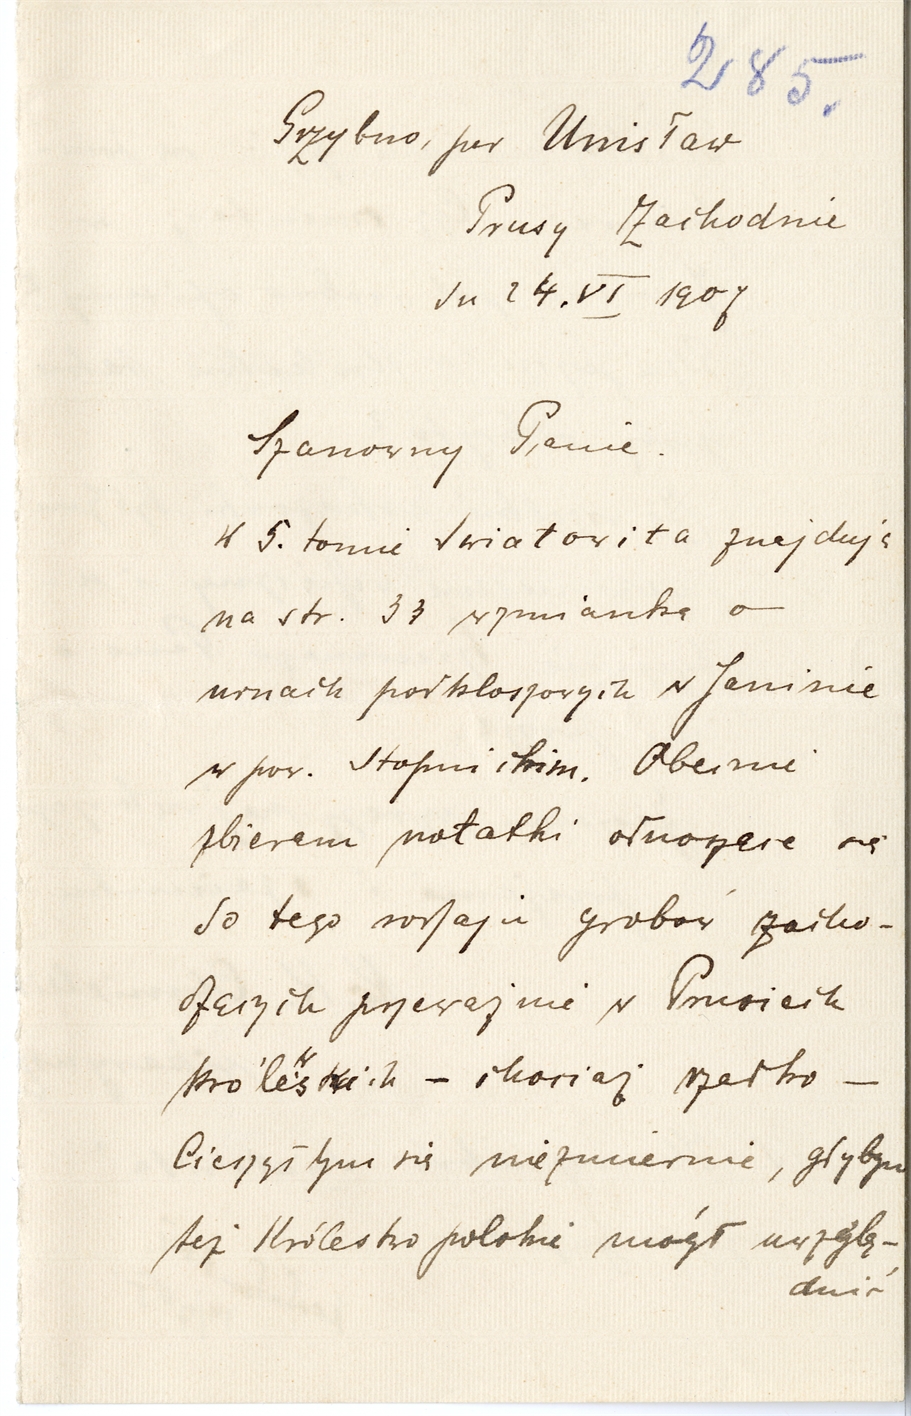 285.
Grzybno, per Unisław
Prusy Zachodnie
dn 24.VI 1907
Szanowny Panie.
W 5. tomie Światowita znajduję
na str. 33 wzmiankę o
urnach podkloszowych w Janinie
w pow. Stopnickim. Obecnie
zbieram notatki odnoszące się
do tego rodzaju grobów zacho-
dzących przeważnie w Prusiech
Królewskich – chociaż rzadko –
Cieszyłbym się niezmiernie, gdybym
też Królestwo polskie mógł uwzglę-
dnić